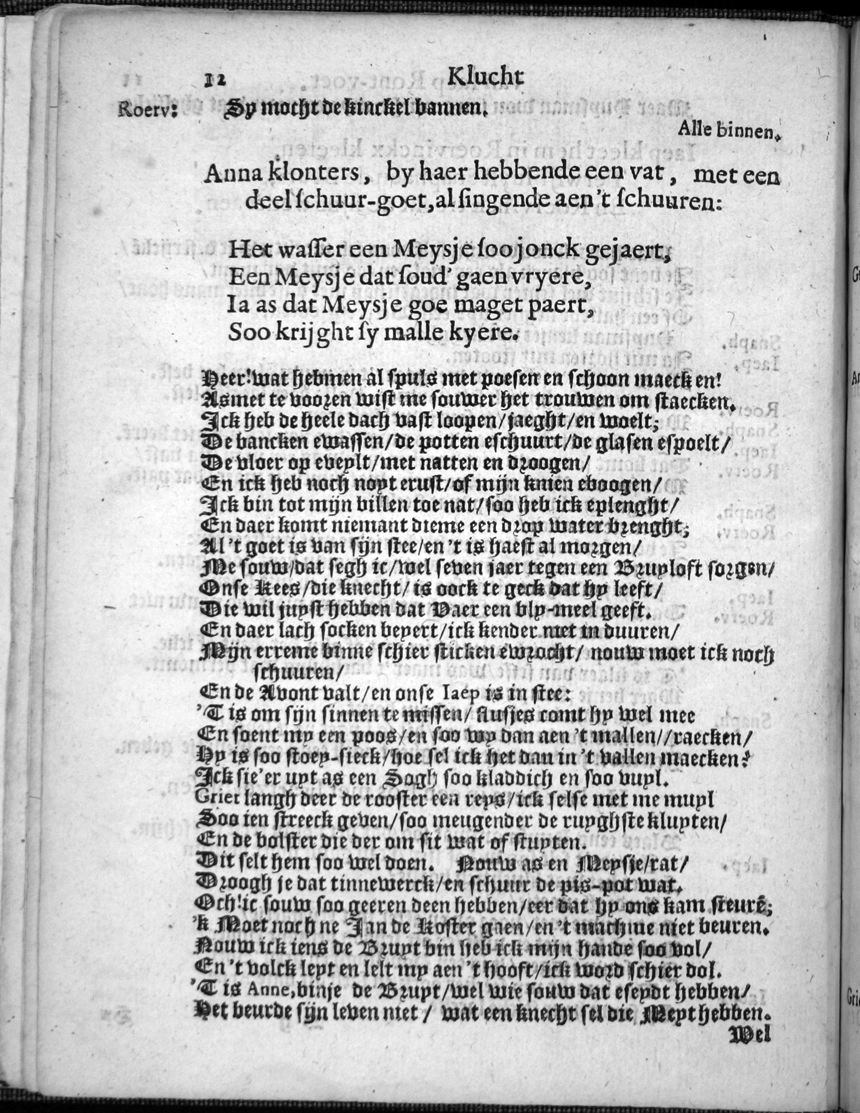 12 Klucht
Roerv: Sy mocht de kinckel bannen.
Alle binnen.
Anna klonters, by haer hebbende een vat, met een
deel schuur-goet, al singende aen't schuuren:
Het wasser een Meysje soo jonck gejaert,
Een Meysje dat soud' gaen vryere,
Ia as dat Meysje goe maget paert,
Soo krijght sy malle kyere.
Heer! wat hebmen al spuls met poesen en schoon maecken!
Asmet te vooren wist me souwer het trouwen om staecken.
Ick heb de heele dach vast loopen/jaeght/en woelt;
De bancken ewassen/de potten eschuurt/de glasen espoelt/
De vloer op eveylt/met natten en droogen/
En ick heb noch noyt erust/of mijn knien eboogen/
Ick bin tot mijn billen toe nat/soo heb ick eplenght/
En daer komt niemant dieme een drop water brenght;
Al 't goet is van sijn stee/en 't is haest al morgen/
Me souw/dat segh ic/wel seven jaer tegen een Bruyloft sorgen/
Onse Kees/die knecht/is oock te geck dat hy leeft/
Die wil juyst hebben dat Vaer een bly-meel geeft.
En daer lach socken beyert/ick kender niet in duuren/
Mijn erreme binne schier sticken ewrocht/ nouw moet ick noch
schuuren/
En de Avont valt/en onse Iaep is in stee:
'T is om sijn sinnen te missen/ flusjes comt hy wel mee
En soent my een poos/en soo wy dan aen 't mallen//raecken/
Hy is soo stoey-sieck/hoe sel ick het dan in 't vallen maecken?
Ick sie'er uyt as een Sogh soo kladdich en soo vuyl.
Griet langh deer de rooster een reys/ick selse met me muyl
Soo ien streeck geven/soo meugender de ruyghste kluyten/
En de bolster die der om sit wat of stuyten.
Dit selt hem soo wel doen. Nouw as en Meysje/rat/
Droogh je dat tinnewerck/en schuur de pis-pot wat.
Och! ic souw soo geeren deen hebben/eer dat hy ons kam steurē;
'k Moet noch ne Jan de Koster gaen/en 't mach me niet beuren.
Nouw ick iens de Bruyt bin heb ick mijn hande soo vol/
En 't volck leyt en lelt my aen 't hooft/ick word schier dol.
'T is Anne, binje de Bruyt/wel wie souw dat eseydt hebben/
Het beurde sijn leven niet/ wat een knecht sel die Meyt hebben.
Wel